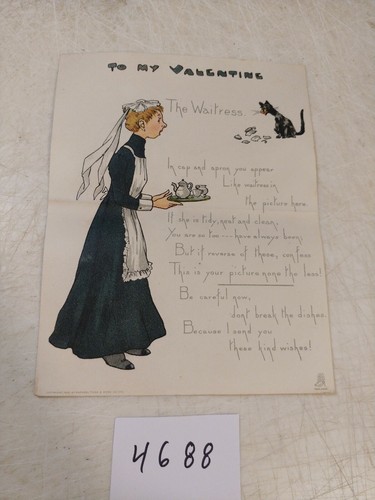 TO MY VALENTINE
The Waitress.
In cap and apron you appear
Like waitress in
the picture here.
If she is tidy, neat and clean,
You are so too — have always been,
But if reverse of these, confess
This is your picture none the less!
Be careful now,
dont break the dishes.
Because I send you
these kind wishes!
4688